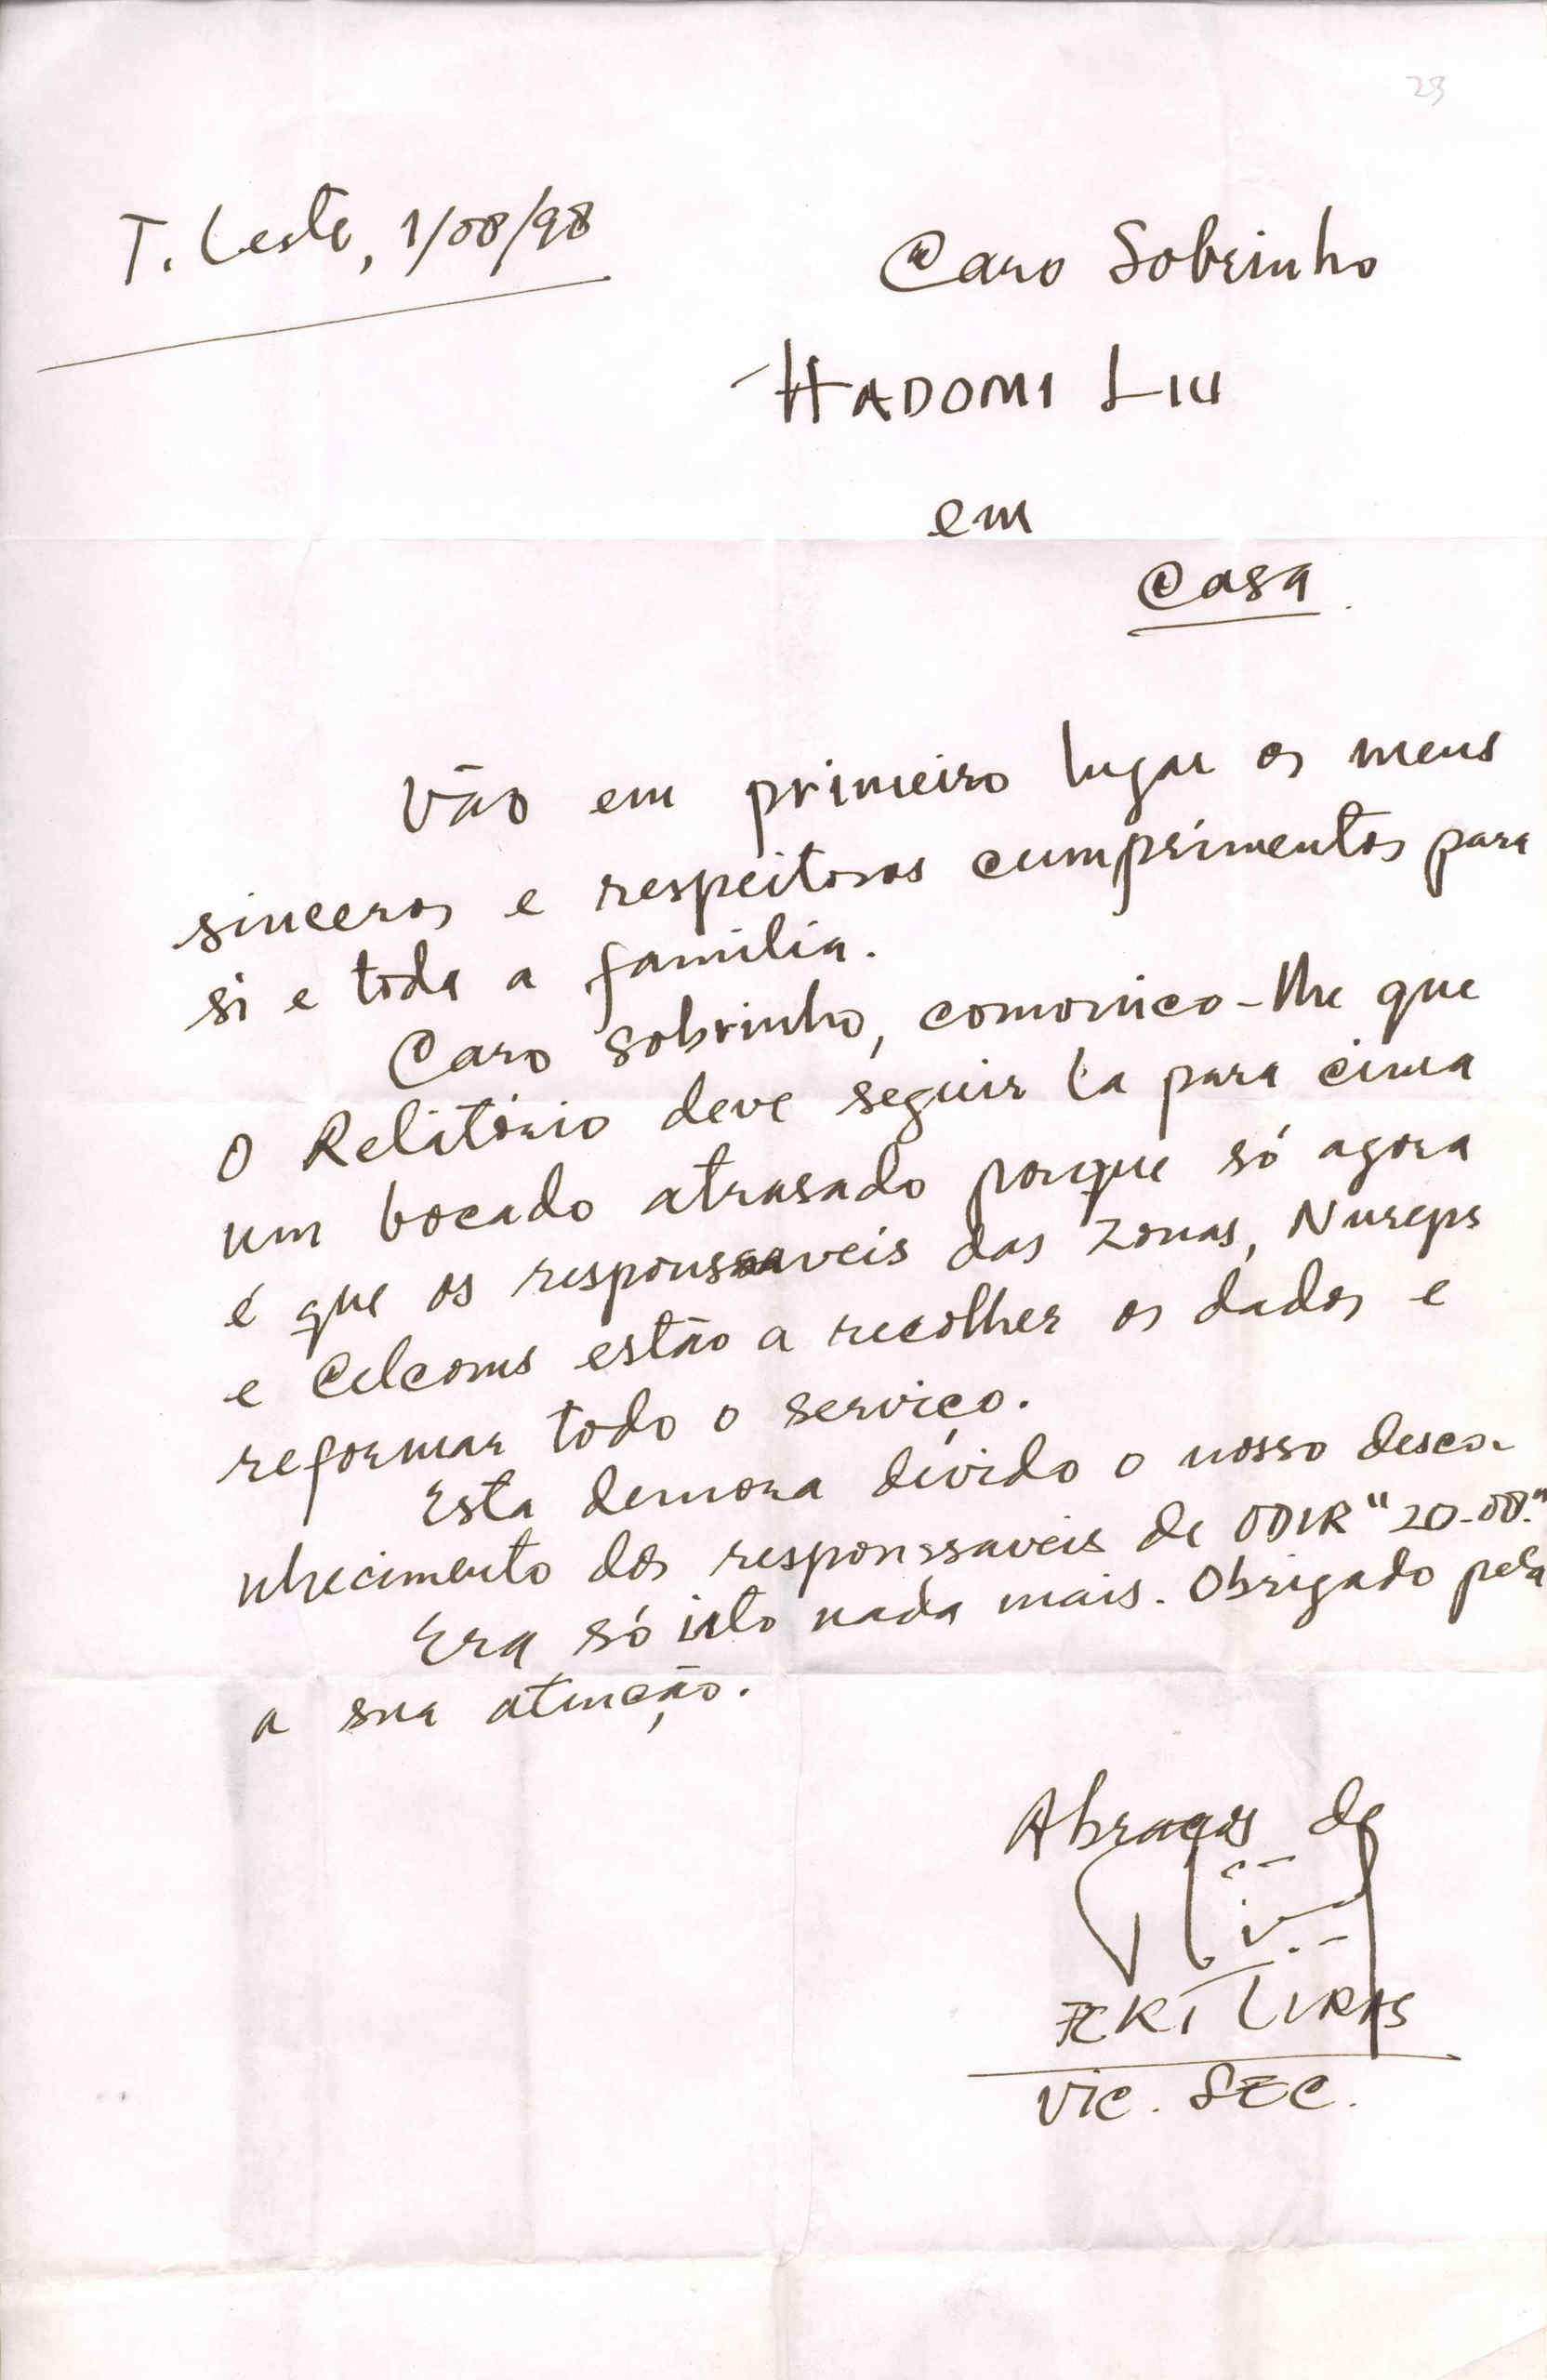 23
T. Leste, 1/08/98
Caro Sobrinho
HADOMI LIU
em
Casa.
Vão em primeiro lugar os meus
sinceros e respeitosos cumprimentos para
si e toda a familia.
Caro sobrinho, comonico-lhe que
O Relitório deve seguir lá para cima
um bocado atrasado porque só agora
é que os responssaveis das Zonas, Nureps
e Celcoms estão a recolher os dados e
reformar todo o serviço.
Esta demora divido o nosso desco-
nhecimento dos responssaveis de ODIR "20-00."
Era só isto nada mais. Obrigado pela
a sua atincção.
Abraços de
LIRAS
Vic. SEC.